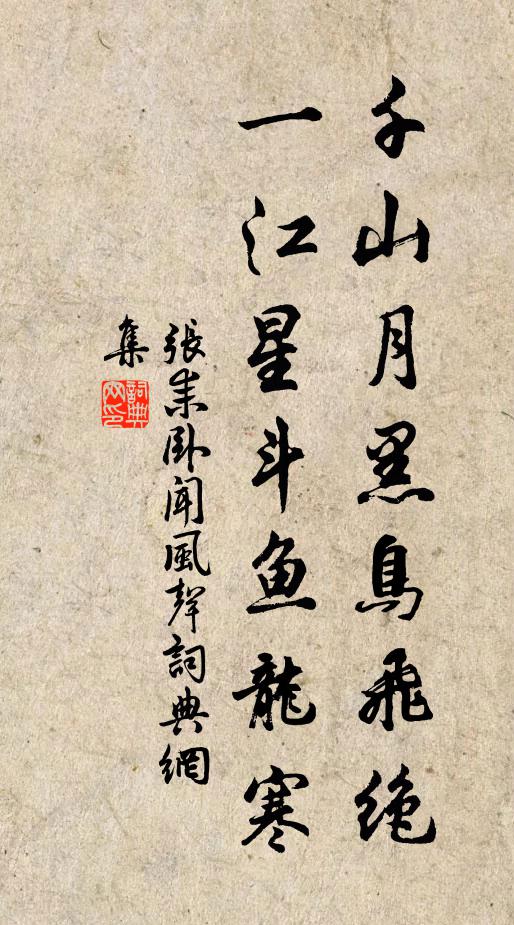 千山月黑鳥飛绝
一江星斗魚龍寒
張耒卧聞風聲詞典網
集
詞典
网印